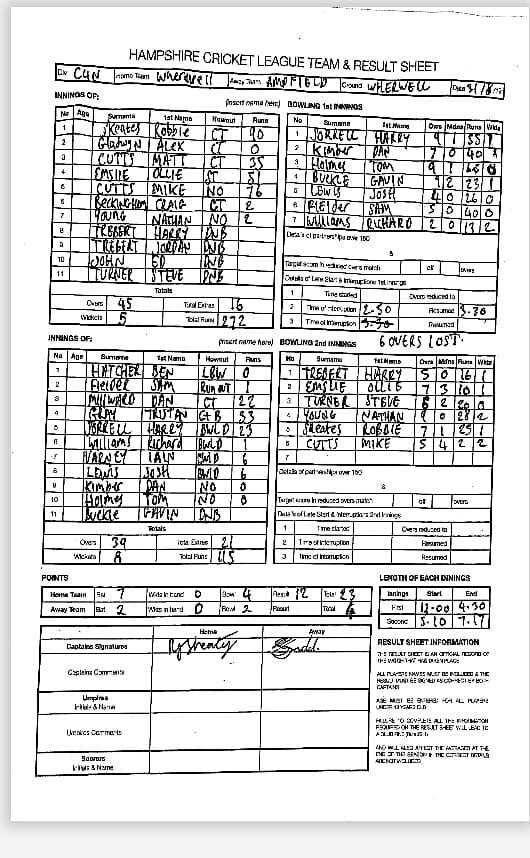 HAMPSHIRE CRICKET LEAGUE TEAM & RESULT SHEET
Div C4N Home Team Wherwell Away Team AMPFIELD Ground WHERWELL Date
INNINGS OF: (insert name here)
No Age Surname 1st Name Howout Runs
1 Skeates Robbie CT 90
2 Gladwyn ALEX CT 0
3 CUTTS MATT CT 35
4 EMSLIE OLLIE ST 51
5 CUTTS MIKE NO 76
6 Beckingham CRAIG CT 2
7 Young NATHAN NO 2
8 TREBERT HARRY DNB
9 TREBERT JORDAN DNB
10 JOHN ED DNB
11 TURNER STEVE DNB
Totals
Overs 45 Total Extras 16
Wickets 5 Total Runs 272
BOWLING 1st INNINGS
No Surname 1st Name Overs Mdns Runs Wkts
1 JORRELL HARRY 9 1 55 1
2 Kimber DAN 7 0 40
3 Holmes TOM 9 1 0
4 BUCKLE GAVIN 2 23 1
5 LEWIS JOSH 4 0 26 0
6 FIELDER SAM 5 0 40 0
7 Williams RICHARD 2 0 13 2
Details of partnerships over 150
&
Target score in reduced overs match off overs
Details of Late Start & Interruptions 1st Innings
1 Time started Overs reduced to
2 Time of Interruption 2.50 Resumed 3.30
3 Time of Interruption Resumed
6 OVERS LOST.
INNINGS OF: (insert name here)
No Age Surname 1st Name Howout Runs
1 HATCHER BEN LBW 0
2 Fielder SAM RUN OUT 1
3 MILLWARD DAN CT 22
4 GRAY TRISTAN CTB 53
5 JORRELL HARRY BWLD 23
6 Williams Richard BWLD
7 VARNEY IAIN BWD 6
8 LEWIS Josh BWD 6
9 Kimber DAN NO 0
10 Holmes TOM NO 0
11 Buckle GAVIN DNB
Totals
Overs 39 Total Extras 21
Wickets 8 Total Runs 115
BOWLING 2nd INNINGS
No Surname 1st Name Overs Mdns Runs Wkts
1 TREBERT HARRY 5 0 16 1
2 EMSLIE OLLIE 7 3 10 1
3 TURNER STEVE 6 2 20 0
4 YOUNG NATHAN 0 2
5 Skeates ROBBIE 7 1 25 1
6 CUTTS MIKE 5 4 2 2
7
Details of partnerships over 150
&
Target score in reduced overs match off overs
Details of Late Start & Interruptions 2nd Innings
1 Time started Overs reduced to
2 Time of Interruption Resumed
3 Time of Interruption Resumed
POINTS
Home Team Bat 7 Wkts in hand 0 Bowl 4 Result 12 Total 23
Away Team Bat 2 Wkts in hand 0 Bowl 2 Result Total
LENGTH OF EACH INNINGS
Innings Start End
First 12.00 4.30
Second 5.10 7.17
Home Away
Captains Signatures
Captains Comments
Umpires
Initials & Name
Umpires Comments
Scorers
Initials & Name
RESULT SHEET INFORMATION
THE RESULT SHEET IS AN OFFICIAL RECORD OF
THE MATCH THAT HAS TAKEN PLACE
ALL PLAYERS NAMES MUST BE INCLUDED & THE
RESULT MUST BE SIGNED AS CORRECT BY BOTH
CAPTAINS
AGE MUST BE ENTERED FOR ALL PLAYERS
FAILURE TO COMPLETE ALL THE INFORMATION
REQUIRED ON THE RESULT SHEET WILL LEAD TO
AND WILL ALSO AFFECT THE AVERAGES AT THE
END OF THE SEASON IF THE CORRECT DETAILS
ARE NOT INCLUDED